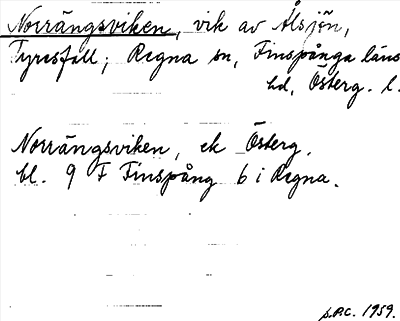 Norrängsviken, vik av Ålsjön,
Tyresfall; Regna sn, Finspånga läns
hd, Österg. l.
Norrängsviken, ek Österg.
bl. 9 F Finspång 6 i Regna.
S.P.C. 1959.